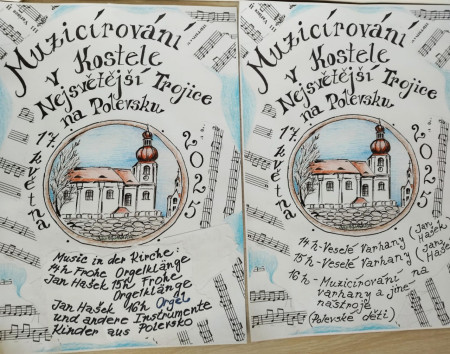 Muzicírování
v Kostele
Nejsvětější Trojice
na Polevsku
17. května
2025
Music in der Kirche:
14 h Frohe Orgelklänge
Jan Hašek 15h Frohe
Orgelklänge
Jan Hašek 16h Orgel
und andere Instrumente
Kinder aus Polevsko
Muzicírování
v Kostele
Nejsvětější Trojice
na Polevsku
17. května
2025
14 h - Veselé Varhany (Jan Hašek)
15 h - Veselé Varhany (Jan Hašek)
16 h - Muzicírování na
varhany a jiné
nástroje
(Polevské děti)